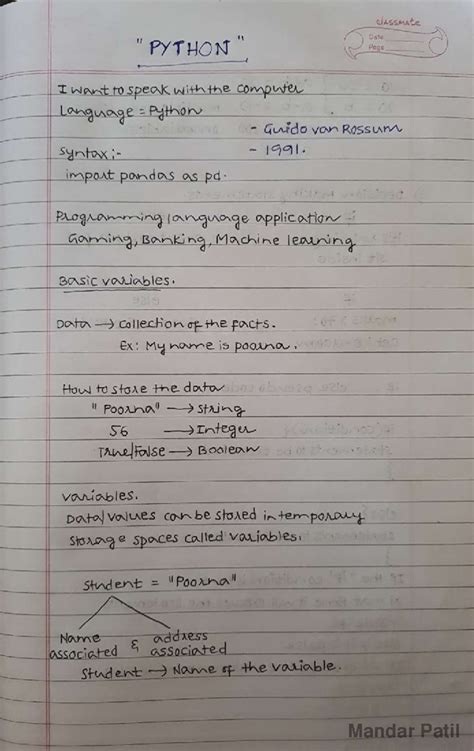 classmate
Date
Page
"PYTHON"
I want to speak with the computer
Language = Python
- Guido van Rossum
- 1991.
Syntax:-
import pandas as pd.
Programming language application -
Gaming, Banking, Machine learning
Basic variables.
Data → Collection of the facts.
Ex: My name is poorna.
How to store the data
"Poorna" → String
56 → Integer
True/False → Boolean
Variables.
Data/values can be stored in temporary
storage spaces called variables.
Student = "Poorna"
Name associated & address associated
Student → Name of the variable.
Mandar Patil